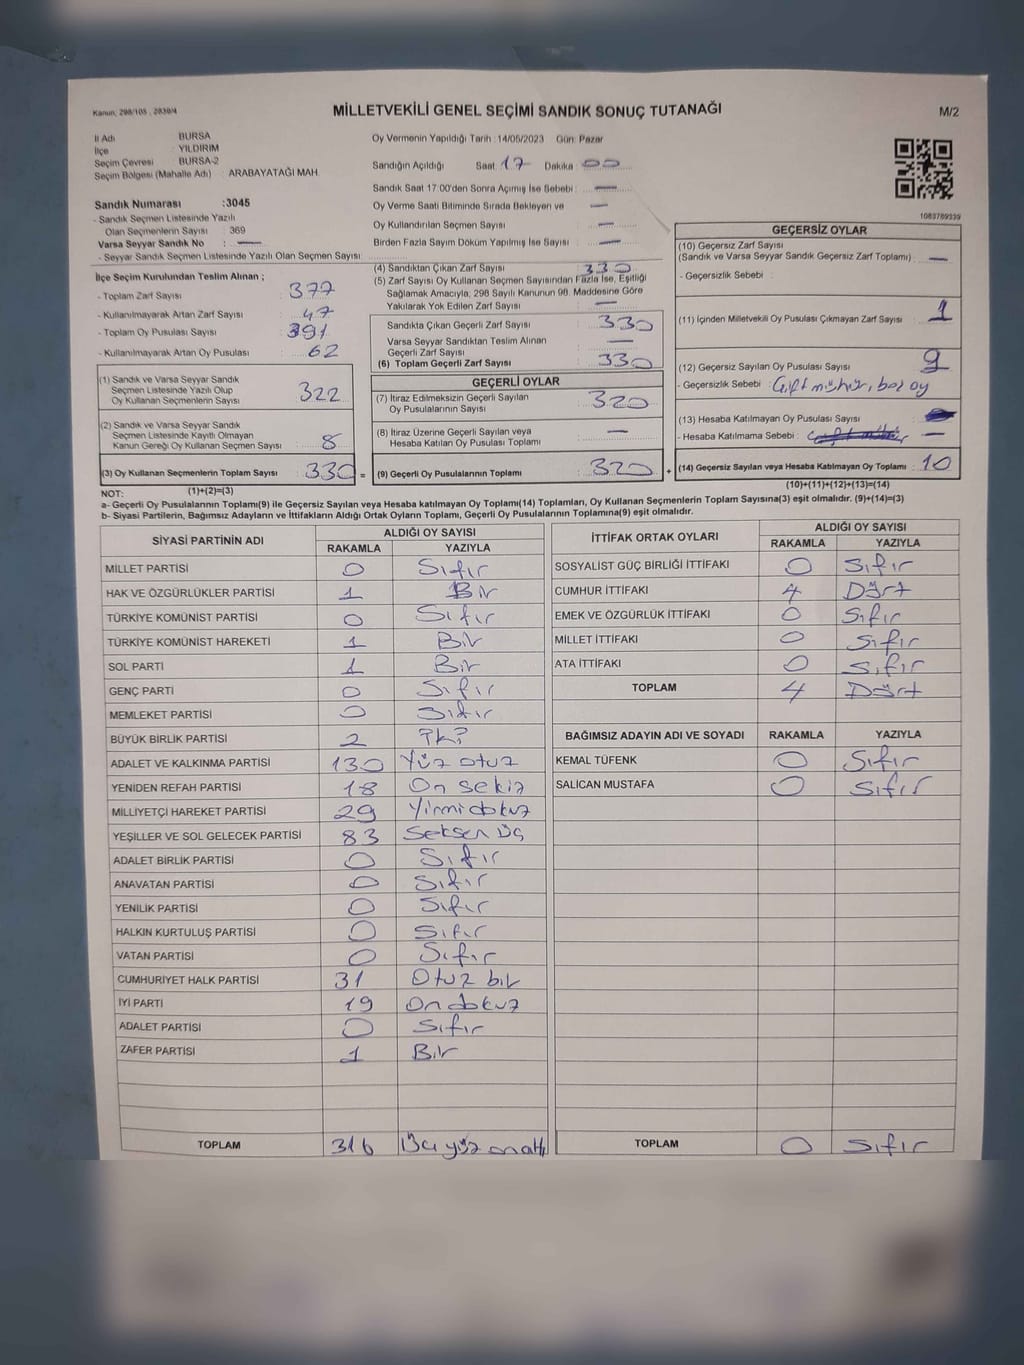 Kanun; 298/105 , 2839/4
MİLLETVEKİLİ GENEL SEÇİMİ SANDIK SONUÇ TUTANAĞI
M/2
İl Adı BURSA
İlçe YILDIRIM
Seçim Çevresi BURSA-2
Seçim Bölgesi (Mahalle Adı) ARABAYATAĞI MAH.
Oy Vermenin Yapıldığı Tarih :14/05/2023 Gün: Pazar
Sandığın Açıldığı Saat: 17 Dakika: 00
Sandık Saat 17:00'den Sonra Açımış İse Sebebi : —
Oy Verme Saati Bitiminde Sırada Bekleyen ve —
Oy Kullandırılan Seçmen Sayısı : —
Birden Fazla Sayım Döküm Yapılmış İse Sayısı : —
1083789339
Sandık Numarası :3045
- Sandık Seçmen Listesinde Yazılı
Olan Seçmenlerin Sayısı : 369
Varsa Seyyar Sandık No : —
- Seyyar Sandık Seçmen Listesinde Yazılı Olan Seçmen Sayısı:
İlçe Seçim Kurulundan Teslim Alınan ;
- Toplam Zarf Sayısı : 377
- Kullanılmayarak Artan Zarf Sayısı : 47
- Toplam Oy Pusulası Sayısı : 391
- Kullanılmayarak Artan Oy Pusulası : 62
(1) Sandık ve Varsa Seyyar Sandık
Seçmen Listesinde Yazılı Olup
Oy Kullanan Seçmenlerin Sayısı : 322
(2) Sandık ve Varsa Seyyar Sandık
Seçmen Listesinde Kayıtlı Olmayan
Kanun Gereği Oy Kullanan Seçmen Sayısı : 8
(3) Oy Kullanan Seçmenlerin Toplam Sayısı : 330 =
(1)+(2)=(3)
(4) Sandıktan Çıkan Zarf Sayısı : 330
(5) Zarf Sayısı Oy Kullanan Seçmen Sayısından Fazla İse, Eşitliği
Sağlamak Amacıyla, 298 Sayılı Kanunun 98. Maddesine Göre
Yakılarak Yok Edilen Zarf Sayısı : —
Sandıkta Çıkan Geçerli Zarf Sayısı : 330
Varsa Seyyar Sandıktan Teslim Alınan
Geçerli Zarf Sayısı : —
(6) Toplam Geçerli Zarf Sayısı : 330
GEÇERLİ OYLAR
(7) İtiraz Edilmeksizin Geçerli Sayılan
Oy Pusulalarının Sayısı : 320
(8) İtiraz Üzerine Geçerli Sayılan veya
Hesaba Katılan Oy Pusulası Toplamı : —
(9) Geçerli Oy Pusulalarının Toplamı : 320 +
GEÇERSİZ OYLAR
(10) Geçersiz Zarf Sayısı
(Sandık ve Varsa Seyyar Sandık Geçersiz Zarf Toplamı) : —
- Geçersizlik Sebebi :
(11) İçinden Milletvekili Oy Pusulası Çıkmayan Zarf Sayısı : 1
(12) Geçersiz Sayılan Oy Pusulası Sayısı : 9
- Geçersizlik Sebebi : Çift mühür, boz oy
(13) Hesaba Katılmayan Oy Pusulası Sayısı :
- Hesaba Katılmama Sebebi : —
(14) Geçersiz Sayılan veya Hesaba Katılmayan Oy Toplamı : 10
(10)+(11)+(12)+(13)=(14)
NOT:
a- Geçerli Oy Pusulasının Toplamı(9) ile Geçersiz Sayılan veya Hesaba katılmayan Oy Toplamı(14) Toplamları, Oy Kullanan Seçmenlerin Toplam Sayısına(3) eşit olmalıdır. (9)+(14)=(3)
b- Siyasi Partilerin, Bağımsız Adayların ve İttifakların Aldığı Ortak Oyların Toplamı, Geçerli Oy Pusulalarının Toplamına(9) eşit olmalıdır.
SİYASİ PARTİNİN ADI ALDIĞI OY SAYISI
RAKAMLA YAZIYLA
MİLLET PARTİSİ 0 Sıfır
HAK VE ÖZGÜRLÜKLER PARTİSİ 1 Bir
TÜRKİYE KOMÜNİST PARTİSİ 0 Sıfır
TÜRKİYE KOMÜNİST HAREKETİ 1 Bir
SOL PARTİ 1 Bir
GENÇ PARTİ 0 Sıfır
MEMLEKET PARTİSİ 0 Sıfır
BÜYÜK BİRLİK PARTİSİ 2 İki
ADALET VE KALKINMA PARTİSİ 130 Yüz otuz
YENİDEN REFAH PARTİSİ 18 On sekiz
MİLLİYETÇİ HAREKET PARTİSİ 29 Yirmi dokuz
YEŞİLLER VE SOL GELECEK PARTİSİ 83 Seksen üç
ADALET BİRLİK PARTİSİ 0 Sıfır
ANAVATAN PARTİSİ 0 Sıfır
YENİLİK PARTİSİ 0 Sıfır
HALKIN KURTULUŞ PARTİSİ 0 Sıfır
VATAN PARTİSİ 0 Sıfır
CUMHURİYET HALK PARTİSİ 31 Otuz bir
İYİ PARTİ 19 On dokuz
ADALET PARTİSİ 0 Sıfır
ZAFER PARTİSİ 1 Bir
TOPLAM 316 Üç yüz onaltı
İTTİFAK ORTAK OYLARI ALDIĞI OY SAYISI
RAKAMLA YAZIYLA
SOSYALİST GÜÇ BİRLİĞİ İTTİFAKI 0 Sıfır
CUMHUR İTTİFAKI 4 Dört
EMEK VE ÖZGÜRLÜK İTTİFAKI 0 Sıfır
MİLLET İTTİFAKI 0 Sıfır
ATA İTTİFAKI 0 Sıfır
TOPLAM 4 Dört
BAĞIMSIZ ADAYIN ADI VE SOYADI RAKAMLA YAZIYLA
KEMAL TÜFENK 0 Sıfır
SALİCAN MUSTAFA 0 Sıfır
TOPLAM 0 Sıfır